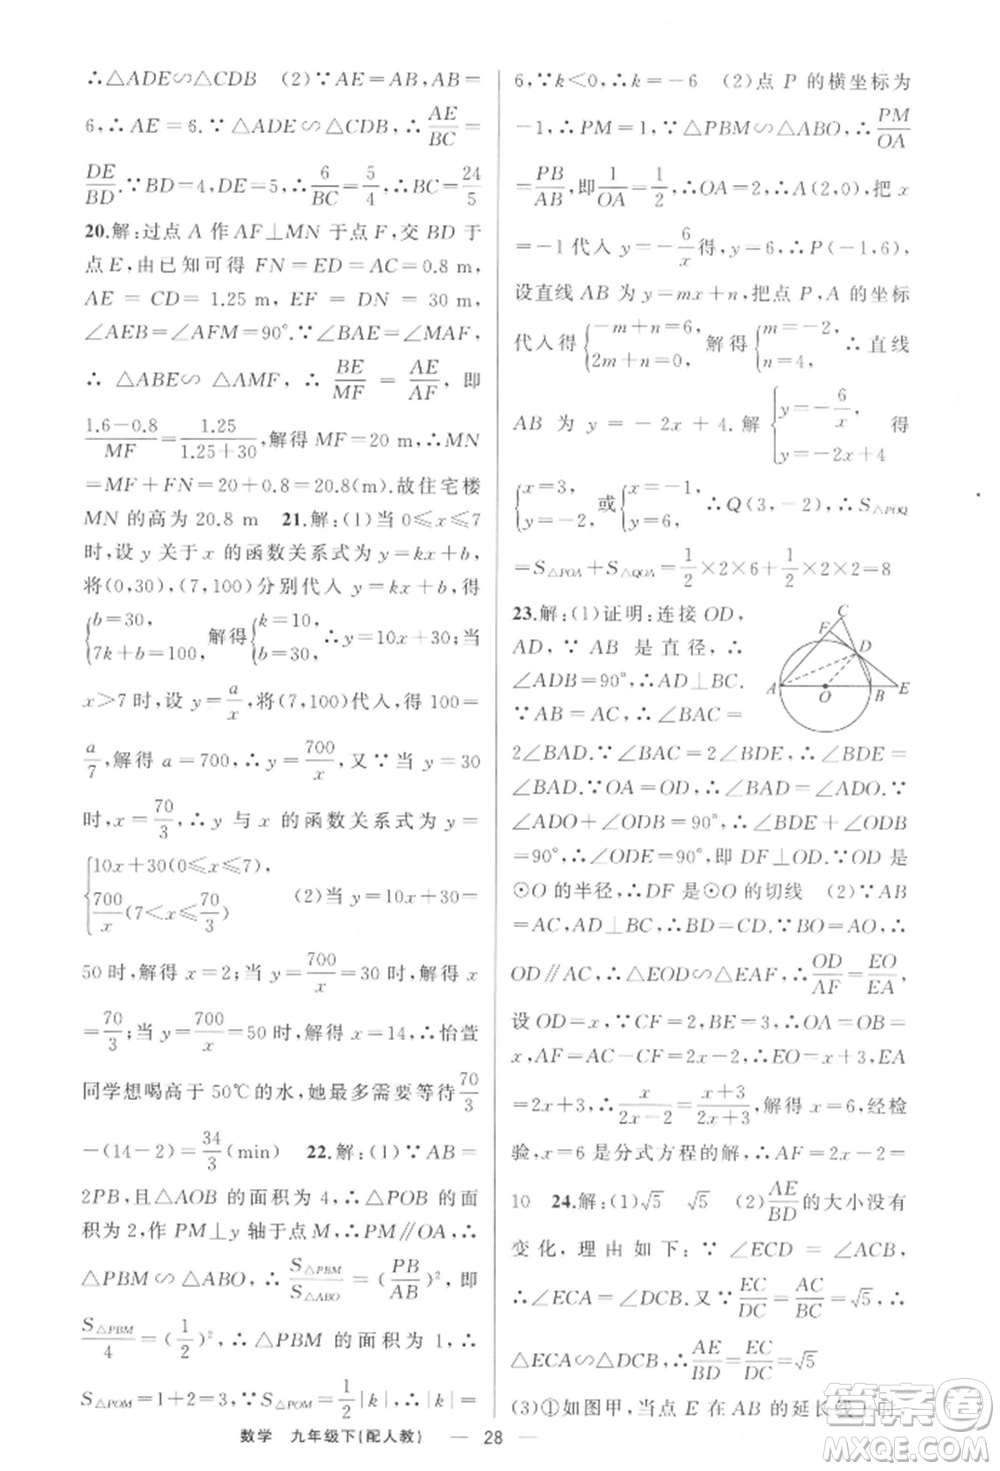 ∴△ADE∽△CDB　(2)∵AE=AB,AB=
6,∴AE=6.∵△ADE∽△CDB,∴AE/BC=
DE/BD.∵BD=4,DE=5,∴6/BC=5/4,∴BC=24/5
20.解:过点 A 作 AF⊥MN 于点 F,交 BD 于
点 E,由已知可得 FN=ED=AC=0.8 m,
AE=CD=1.25 m,EF=DN=30 m,
∠AEB=∠AFM=90°.∵∠BAE=∠MAF,
∴△ABE∽△AMF,∴BE/MF=AE/AF,即
(1.6-0.8)/MF=1.25/(1.25+30),解得 MF=20 m,∴MN
=MF+FN=20+0.8=20.8(m).故住宅楼
MN 的高为 20.8 m　21.解:(1)当 0≤x≤7
时,设 y 关于 x 的函数关系式为 y=kx+b,
将(0,30),(7,100)分别代入 y=kx+b,得
{b=30, 7k+b=100, 解得{k=10, b=30, ∴y=10x+30;当
x>7 时,设 y=a/x,将(7,100)代入,得 100=
a/7,解得 a=700,∴y=700/x,当 y=30
时,x=70/3,∴y 与 x 的函数关系式为 y=
{10x+30(0≤x≤7) 700/x(7<x≤70/3)　(2)当 y=10x+30=
50 时,解得 x=2;当 y=700/x=30 时,解得 x
=70/3;当 y=700/x=50 时,解得 x=14,∴怡萱
同学想喝高于 50℃的水,她最多需要等待70/3
-(14-2)=34/3(min)　22.解:(1)∵AB=
2PB,且△AOB 的面积为 4,∴△POB 的面
积为 2,作 PM⊥y 轴于点 M,∴PM∥OA,∴
△PBM∽△ABO,∴S△PBM/S△ABO=(PB/AB)²,即
S△PBM/4=(1/2)²,∴△PBM 的面积为 1,∴
S△POM=1+2=3,∵S△POM=1/2|k|,∴|k|=
6,∵k<0,∴k=-6　(2)点 P 的横坐标为
-1,∴PM=1,∵△PBM∽△ABO,∴PM/OA
=PB/AB,即1/OA=1/2,∴OA=2,∴A(2,0),把 x
=-1代入 y=-6/x得,y=6,∴P(-1,6),
设直线 AB 为 y=mx+n,把点 P,A 的坐标
代入得{-m+n=6, 2m+n=0, 解得{m=-2, n=4, ∴直线
AB 为 y=-2x+4.解{y=-6/x y=-2x+4 得
{x=3, y=-2, 或{x=-1, y=6, ∴Q(3,-2),∴S△POQ
=S△POA+S△QOA=1/2×2×6+1/2×2×2=8
23.解:(1)证明:连接 OD,
AD,∵AB 是直径,∴
∠ADB=90°,∴AD⊥BC.
∵AB=AC,∴∠BAC=
2∠BAD.∵∠BAC=2∠BDE,∴∠BDE=
∠BAD.∵OA=OD,∴∠BAD=∠ADO.∵
∠ADO+∠ODB=90°,∴∠BDE+∠ODB
=90°,∴∠ODE=90°,即 DF⊥OD.∵OD 是
⊙O 的半径,∴DF 是⊙O 的切线　(2)∵AB
=AC,AD⊥BC,∴BD=CD.∵BO=AO,∴
OD∥AC,∴△EOD∽△EAF,∴OD/AF=EO/EA,
设 OD=x,∵CF=2,BE=3,∴OA=OB=
x,AF=AC-CF=2x-2,∴EO=x+3,EA
=2x+3,∴x/(2x-2)=(x+3)/(2x+3),解得 x=6,经检
验,x=6 是分式方程的解,∴AF=2x-2=
10　24.解:(1)√5　√5　(2)AE/BD的大小没有
变化,理由如下:∵∠ECD=∠ACB,
∴∠ECA=∠DCB.又∵EC/DC=AC/BC=√5,∴
△ECA∽△DCB,∴AE/BD=EC/DC=√5
(3)①如图甲,当点 E 在 AB 的延长线上时,
C
F
D
A
O
B
E
数学　九年级下(配人教)　—　28　—
答案圈